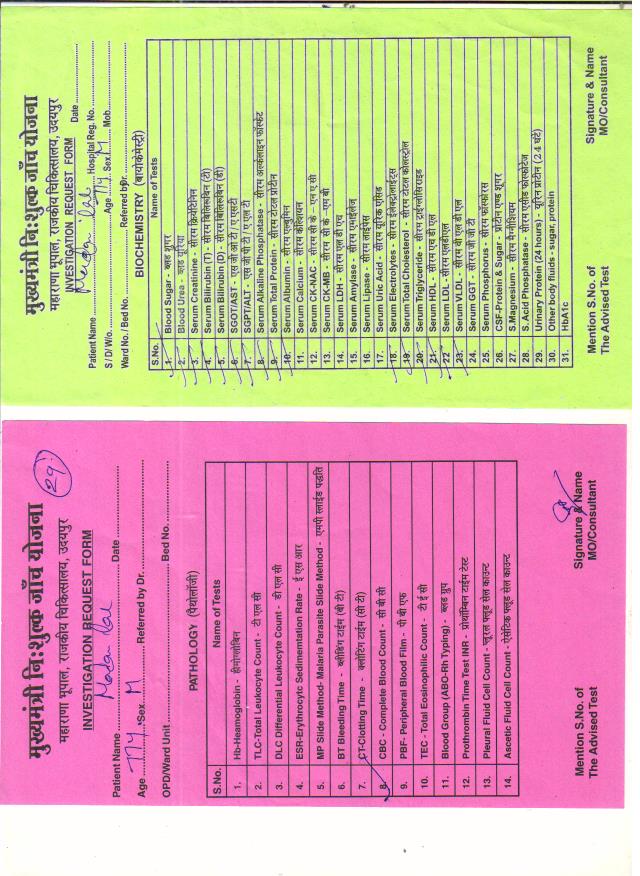 मुख्यमंत्री नि:शुल्क जाँच योजना
महाराणा भूपाल, राजकीय चिकित्सालय, उदयपुर
INVESTIGATION REQUEST FORM
Patient Name Madan Lal Date
Age 77Y Sex M Referred by Dr.
OPD/Ward Unit Bed No.
29
PATHOLOGY (पैथोलॉजी)
S.No. Name of Tests
1. Hb-Heamoglobin - हीमोग्लोबिन
2. TLC-Total Leukocyte Count - टी एल सी
3. DLC Differential Leukocyte Count - डी एल सी
4. ESR-Erythrocytc Sedimemtation Rate - ई एस आर
5. MP Slide Method- Malaria Parasite Slide Method - एमपी स्लाईड पद्धति
6. BT Bleeding Time - ब्लीडिंग टाईम (बी टी)
7. CT-Clotting Time - क्लोटिंग टाईम (सी टी)
8. CBC - Complete Blood Count - सी बी सी
9. PBF- Peripheral Blood Film - पी बी एफ
10. TEC - Total Eosinophilic Count - टी ई सी
11. Blood Group (ABO-Rh Typing) - ब्लड ग्रुप
12. Prothrombin Time Test INR - प्रोथ्रोम्बिन टाईम टेस्ट
13. Pleural Fluid Cell Count - प्लूरल फ्लूड सेल काउन्ट
14. Ascetic Fluid Cell Count - एसेटिक फ्लूड सेल काउन्ट
Mention S.No. of
The Advised Test
Signature & Name
MO/Consultant
मुख्यमंत्री नि:शुल्क जाँच योजना
महाराणा भूपाल, राजकीय चिकित्सालय, उदयपुर
INVESTIGATION REQUEST FORM Date
Patient Name Madan Lal Hospital Reg. No.
S / D/ W/o. Age 77Y Sex M Mob.
Ward No. / Bed No. Referred by Dr.
BIOCHEMISTRY (बायोकेमेस्ट्री)
S.No. Name of Tests
1. Blood Sugar - ब्लड शुगर
2. Blood Urea - ब्लड यूरिया
3. Serum Creatinine - सीरम क्रियेटिनिन
4. Serum Bilirubin (T) - सीरम बिलिरूबिन (टी)
5. Serum Bilirubin (D) - सीरम बिलिरूबिन (डी)
6. SGOT/AST - एस जी ओ टी / ए एसटी
7. SGPT/ALT - एस जी पी टी / ए एल टी
8. Serum Alkaline Phosphatase - सीरम अल्केलाइन फॉस्फेट
9. Serum Total Protein - सीरम टोटल प्रोटीन
10. Serum Albumin - सीरम एल्बुमिन
11. Serum Calcium - सीरम केल्शियम
12. Serum CK-NAC - सीरम सी के - एन ए सी
13. Serum CK-MB - सीरम सी के -एम बी
14. Serum LDH - सीरम एल डी एच
15. Serum Amylase - सीरम एमाईलेज
16. Serum Lipase - सीरम लाईपेस
17. Serum Uric Acid - सीरम यूरिक एसिड
18. Serum Electrolytes - सीरम ईलेक्ट्रोलाईट्स
19. Serum Total Cholesterol - सीरम टोटल कोलस्ट्रोल
20. Serum Triglyceride - सीरम ट्राईग्लीसिराइड
21. Serum HDL - सीरम एच डी एल
22. Serum LDL - सीरम एलडीएल
23. Serum VLDL - सीरम वी एल डी एल
24. Serum GGT - सीरम जी जी टी
25. Serum Phosphorus - सीरम फॉस्फोरस
26. CSF-Protein & Sugar - प्रोटीन एण्ड शूगर
27. S.Magnesium - सीरम मैग्नीशियम
28. S. Acid Phosphatase - सीरम एसीड फोस्फेटेज
29. Urinary Protein (24 hours) - यूरिन प्रोटीन (24 घंटे)
30. Other body fluids - sugar, protein
31. HbA1c
Mention S.No. of
The Advised Test
Signature & Name
MO/Consultant